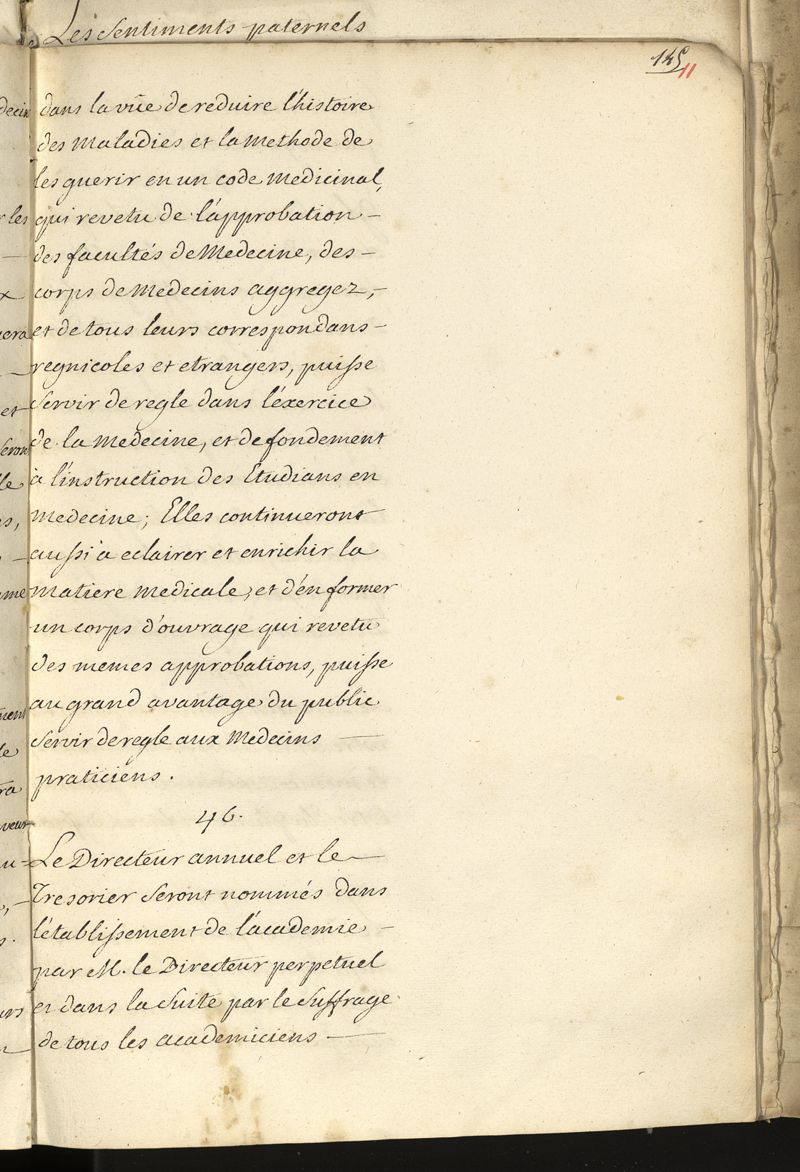 Les Sentiments paternels
145
11
dans la vüe de reduire l'histoire
des Maladies et la Methode de
les guerir en un code Medicinal,
qui revetu de l'approbation –
des facultés de Medecine, des –
corps de Medecins aggregez, –
et de tous leurs correspondans –
regnicoles et etrangers, puisse
servir de regle dans l'éxercice
de la Medecine, et de fondement
à l'instruction des Etudians en
Medecine; Elles continueront
aussi à eclairer et enrichir la
matiere medicale, et d'en former
un corps d'ouvrage qui revetu
des memes approbations, puisse
au grand avantage du public
servir de regle aux Medecins —
praticiens.
46.
Le Directeur annuel et le —
Tresorier seront nommés dans
l'établissement de l'académie –
par M. le Directeur perpetuel
et dans la Suite par le Suffrage
de tous les academiciens —